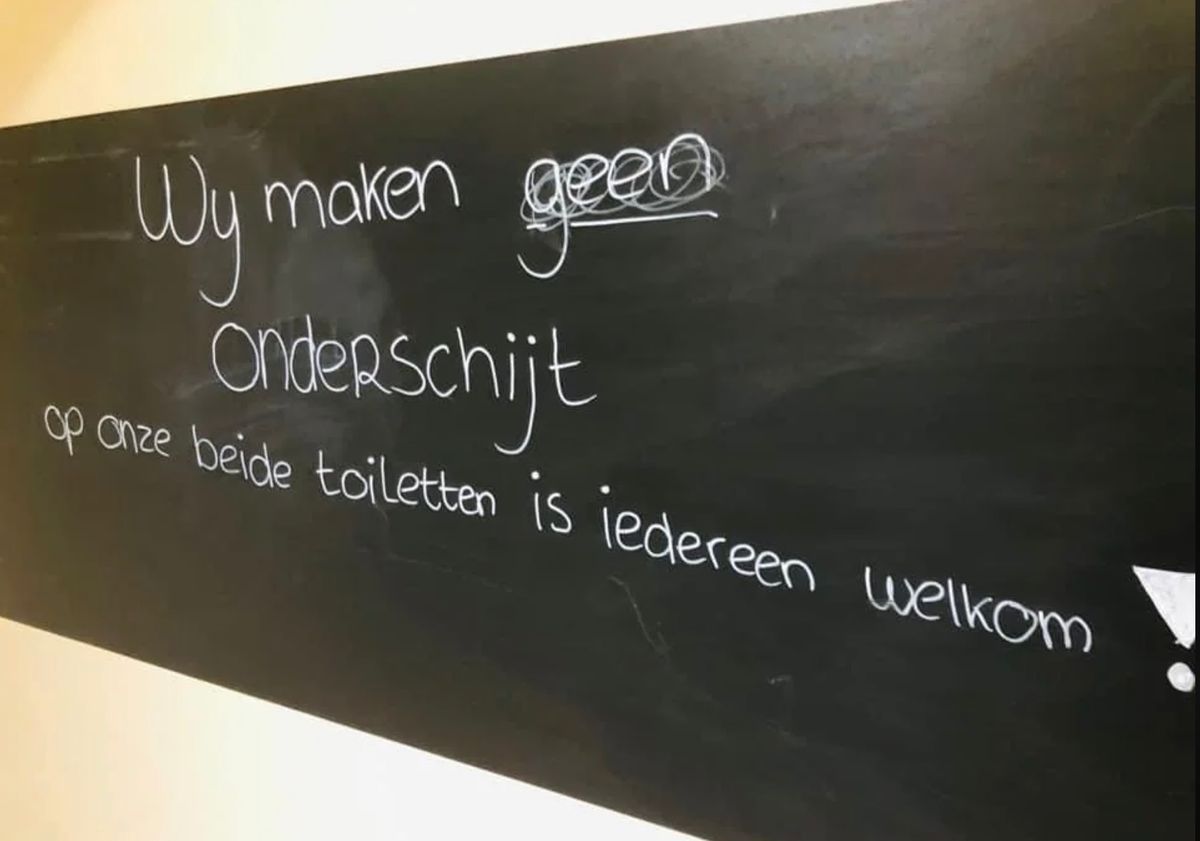 Wy maken geen
onderschijt
op onze beide toiletten is iedereen welkom!